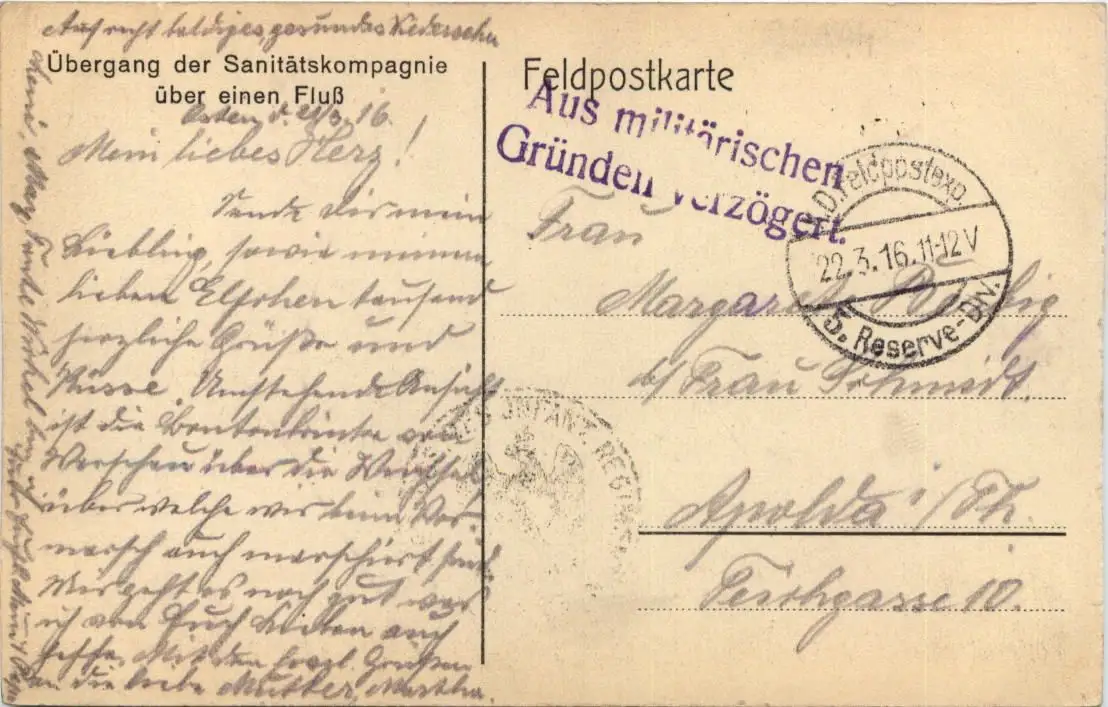 Auf recht baldiges, gesundes Wiedersehn
Übergang der Sanitätskompagnie
über einen Fluß
Osten d. 21/3. 16.
Mein liebes Herz!
Sende Dir mein
Liebling, sowie meinem
lieben Elschen tausend
herzliche Grüße und
Küsse. Umstehende Ansicht
ist die Pontonbrücke von
Warschau über die Weichsel
über welche wir beim Vor-
marsch auch marschiert sind.
Mir geht es noch gut was
ich von Euch Lieben auch
hoffe. Mit den herzl. Grüßen
an die liebe Mutter, Martha,
Feldpostkarte
Aus militärischen
Gründen verzögert.
K.D. Feldpostexp.
22.3.16.11-12V
5. Reserve-Div.
Frau
Margarete
b/ Frau Schmidt.
Apolda i/Th.
Teichgasse 10.
INFANT. REGIMENT